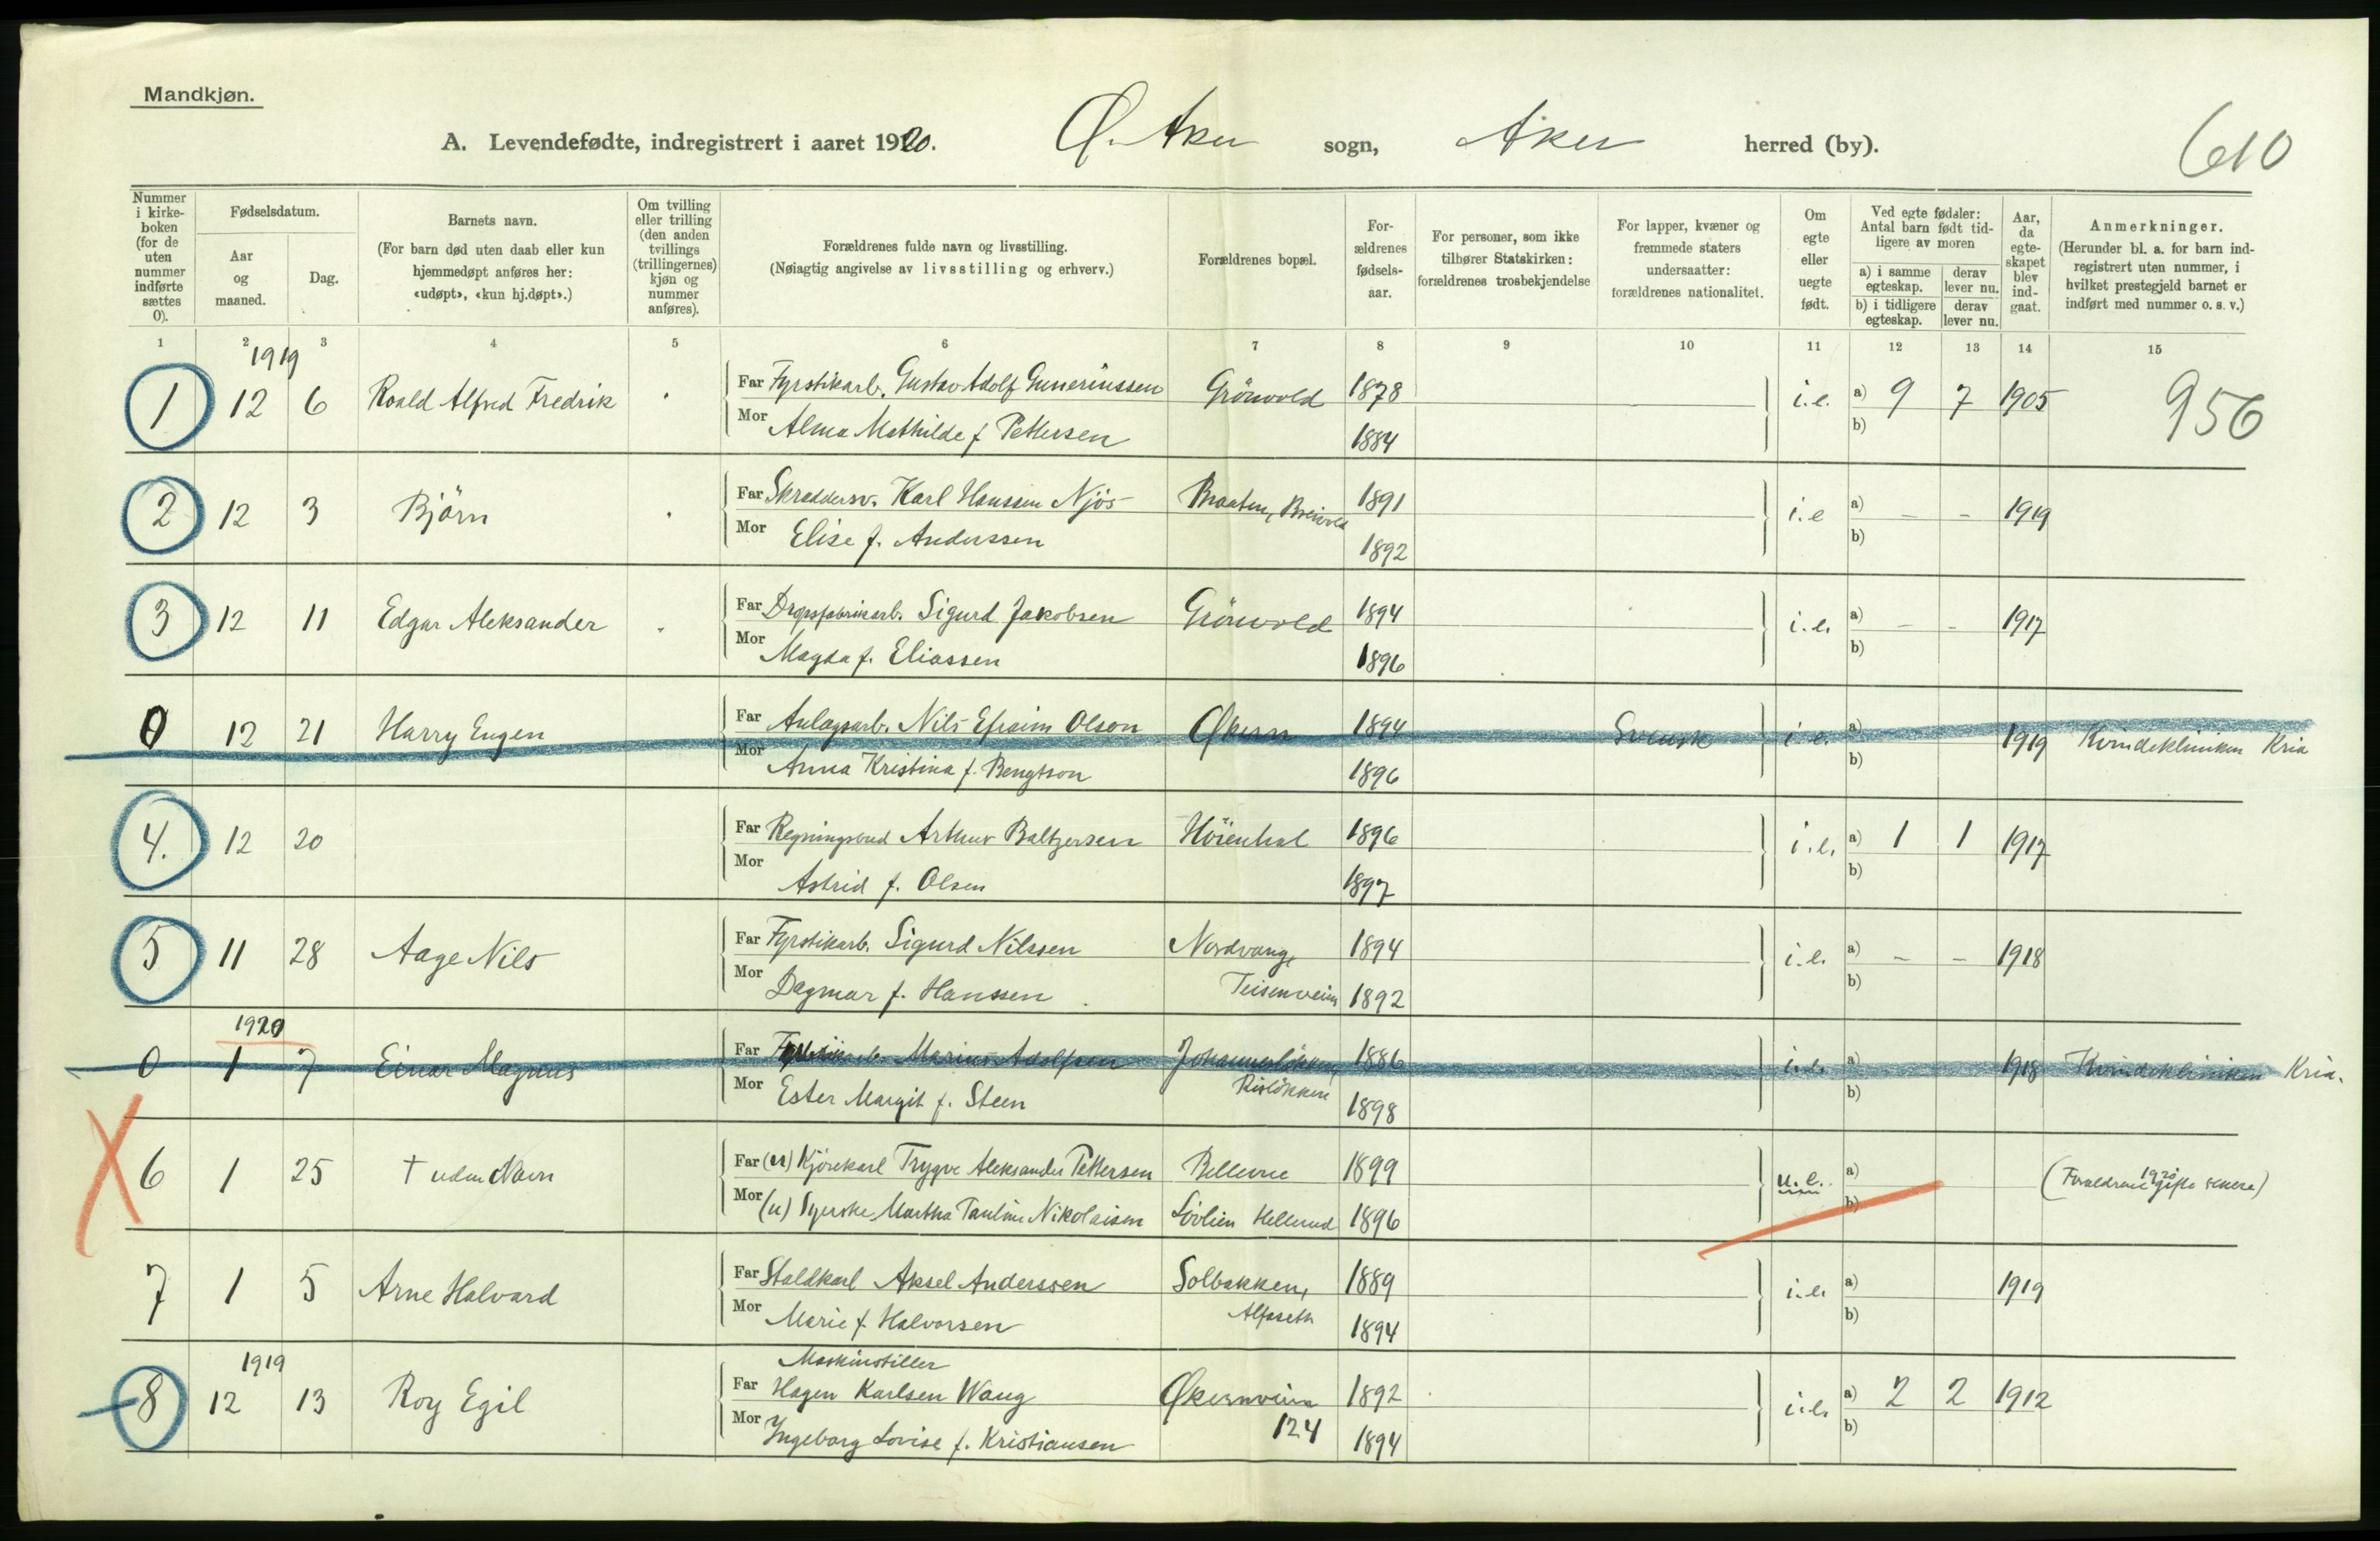 Mandkjøn.
A. Levendefødte, indregistrert i aaret 1920. Ø. Aker sogn, Aker herred (by). 610
Nummer i kirke-boken (for de uten nummer indførte sættes 0).
Fødselsdatum.
Aar og maaned.
Dag.
Barnets navn.
(For barn død uten daab eller kun hjemmedøpt anføres her: «udøpt», «kun hj.døpt».)
Om tvilling eller trilling (den anden tvillings (trillingernes) kjøn og nummer anføres).
Forældrenes fulde navn og livsstilling.
(Nøiagtig angivelse av livsstilling og erhverv.)
Forældrenes bopæl.
For-ældrenes fødsels-aar.
For personer, som ikke tilhører Statskirken: forældrenes trosbekjendelse
For lapper, kvæner og fremmede staters undersaatter: forældrenes nationalitet.
Om egte eller uegte født.
Ved egte fødsler: Antal barn født tid-ligere av moren
a) i samme egteskap.
derav lever nu.
b) i tidligere egteskap.
derav lever nu.
Aar, da egte-skapet blev ind-gaat.
Anmerkninger.
(Herunder bl. a. for barn ind-registrert uten nummer, i hvilket prestegjeld barnet er indført med nummer o. s. v.)
1 2 3 4 5 6 7 8 9 10 11 12 13 14 15
1919
1 12 6 Roald Alfred Fredrik Far Fyrstikarb. Gustav Adolf Guneriussen Grönvold 1878 i.e. a) 9 7 1905 956
Mor Alma Mathilde f. Pettersen 1884 b)
2 12 3 Björn Far Skreddersv. Karl Hanssen Njös Braaten, Breivold 1891 i.e a) - - 1919
Mor Elise f. Anderssen 1892 b)
3 12 11 Edgar Aleksander Far Dropsfabrikarb. Sigurd Jakobsen Grönvold 1894 i.e. a) - - 1917
Mor Magda f. Eliassen 1896 b)
0 12 21 Harry Eugen Far Anlægsarb. Nils Efraim Olson Økern 1894 Svensk i.e. a) 1919 Kvindekliniken Kria
Mor Anna Kristina f. Bengtson 1896 b)
4. 12 20 Far Regningsbud Arthur Baltzersen Höienhal 1896 i.e. a) 1 1 1917
Mor Astrid f. Olsen 1897 b)
5 11 28 Aage Nils Far Fyrstikarb. Sigurd Nilssen Nordvang, 1894 i.e. a) - - 1918
Mor Dagmar f. Hanssen Teisenveien 1892 b)
1920
0 1 7 Einar Magnus Far Marius Adolfsen Johanneslökken, 1886 i.e. a) 1918 Kvindekliniken Kria.
Mor Ester Margit f. Steen Rislökken 1898 b)
6 1 25 † uden Navn Far (u) Kjörekarl Trygve Aleksander Pettersen Bellevue 1899 u.e. a) (Forældrene 1920 gifte senere)
Mor (u) Syerske Martha Pauline Nikolaisen Lövlien Hellerud 1896 b)
7 1 5 Arne Halvard Far Staldkarl Aksel Anderssen Solbakken, 1889 i.e. a) 1919
Mor Marie f. Halvorsen Alfaseth 1894 b)
1919 Maskinstiller
8 12 13 Roy Egil Far Hagen Karlsen Waug Økernveien 1892 i.e. a) 2 2 1912
Mor Ingeborg Lovise f. Kristiansen 124 1894 b)